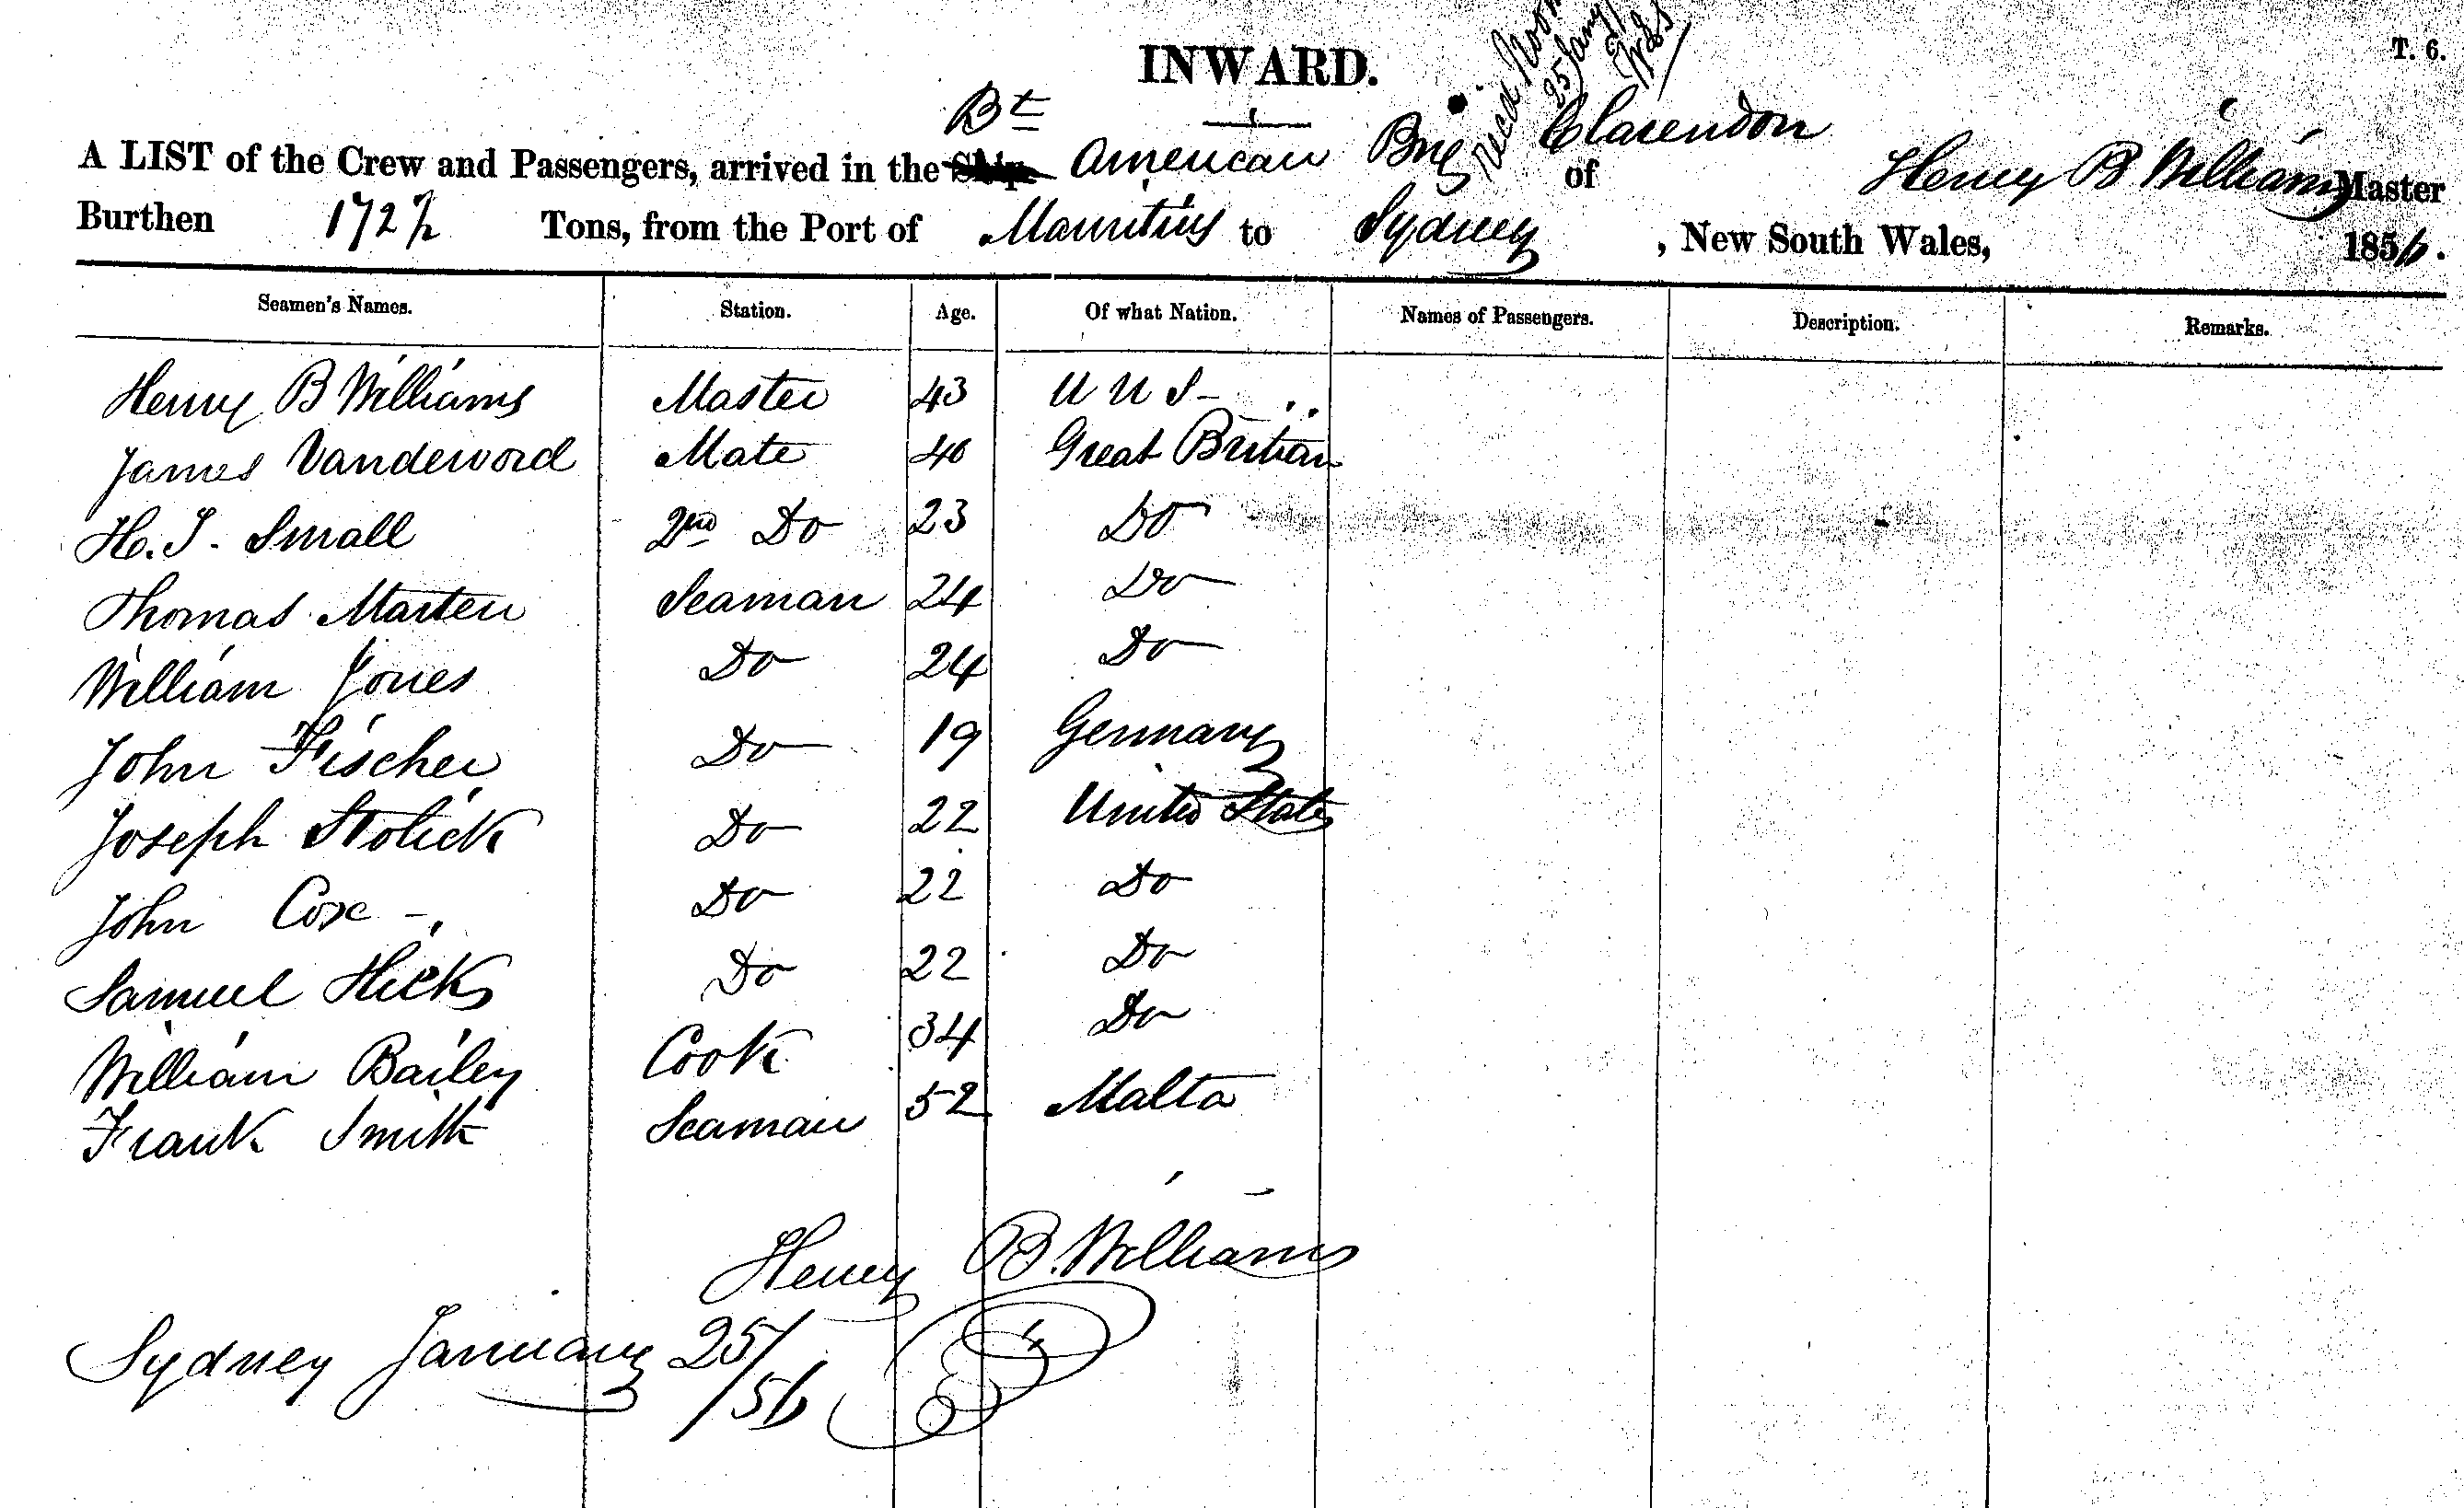 INWARD.
T. 6.
Recd Noon
25 Jany
Bt
A LIST of the Crew and Passengers, arrived in the Ship American Brig Clarendon of Henry B Williams Master
Burthen 172 Tons, from the Port of Mauritius to Sydney, New South Wales, 1856.
Seamen's Names. Station. Age. Of what Nation. Names of Passengers. Description. Remarks.
Henry B Williams Master 43 U U S
James Vandervord Mate 40 Great Britian
H. J. Small 2nd Do 23 Do
Thomas Marten Seaman 24 Do
William Jones Do 24 Do
John Fischer Do 19 Germany
Joseph Do 22 United States
John Coxe Do 22 Do
Samuel Hicks Do 22 Do
William Bailey Cook 34 Do
Frank Smith Seaman 52 Malta
Henry B. Williams
Sydney January 25/56